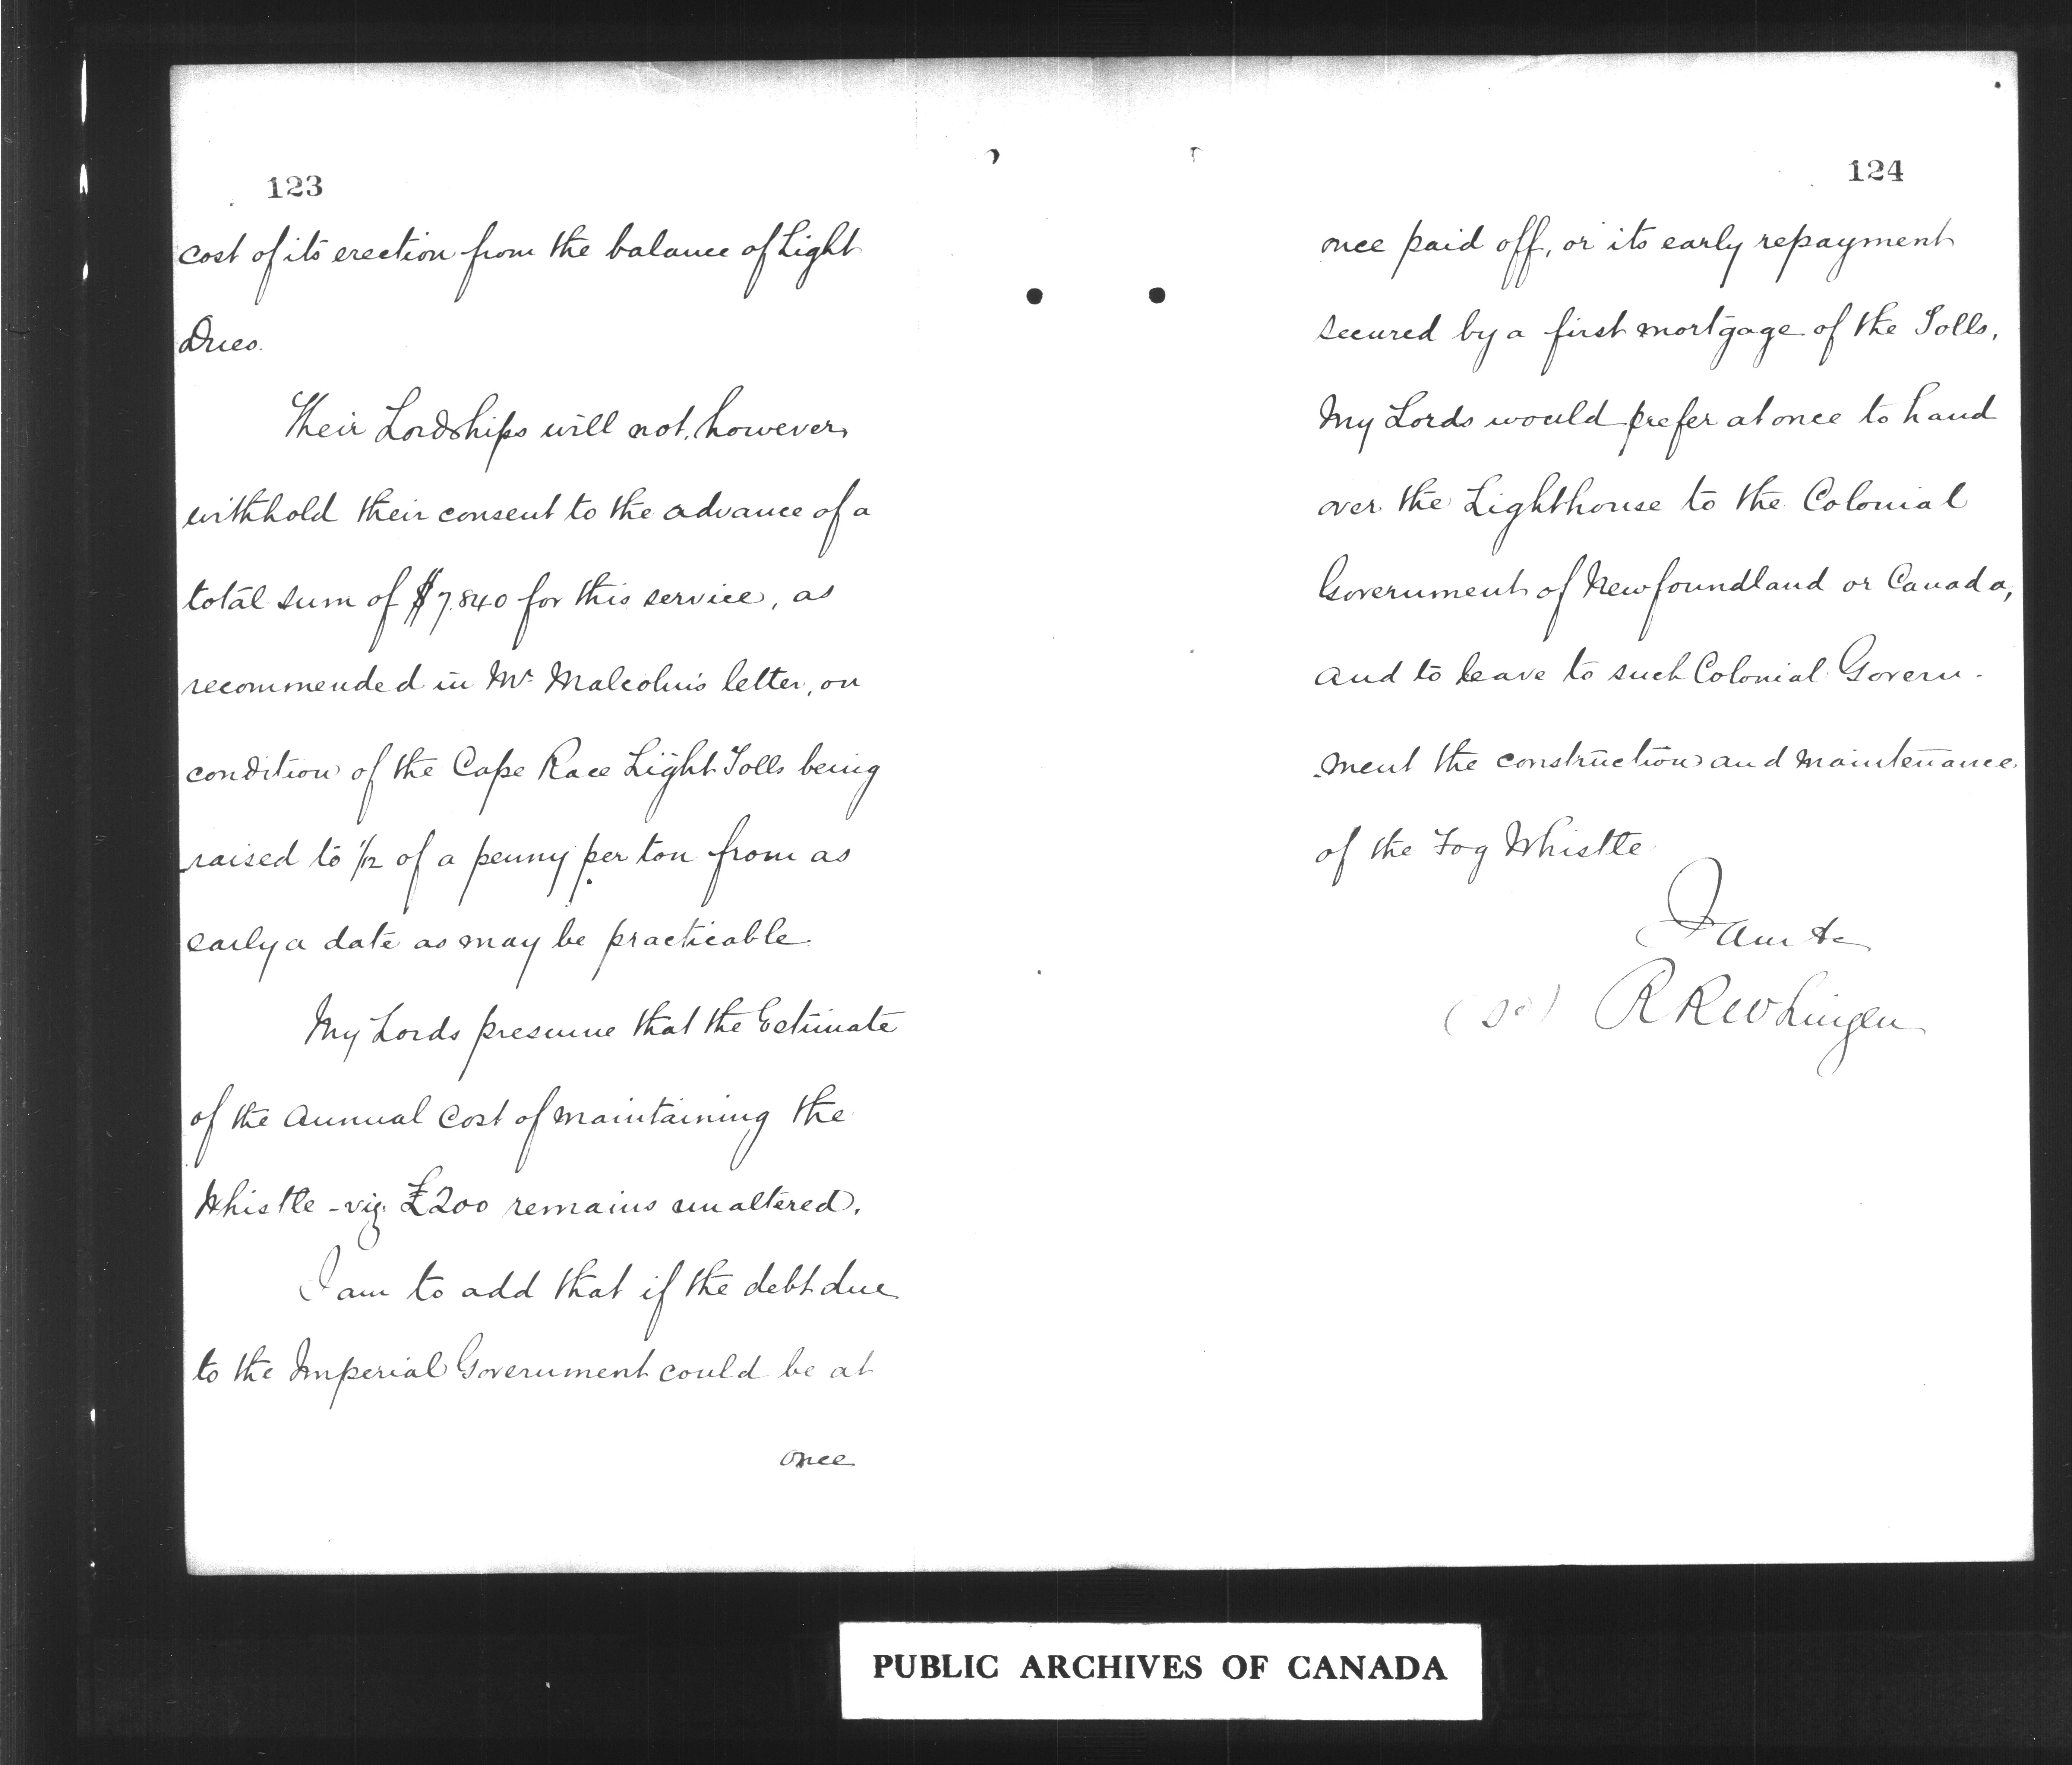 123
cost of its erection from the balance of Light
Dues.
Their Lordships will not, however,
withhold their consent to the advance of a
total sum of $7.840 for this service, as
recommended in Mr. Malcolm's letter, on
condition of the Cape Race Light Tolls being
raised to 1/12 of a penny per ton from as
early a date as may be practicable.
My Lords presume that the Estimate
of the annual cost of maintaining the
Whistle - viz. £200 remains unaltered.
I am to add that if the debt due
to the Imperial Government could be at
once
124
once paid off, or its early repayment
secured by a first mortgage of the Tolls,
My Lords would prefer at once to hand
over the Lighthouse to the Colonial
Government of Newfoundland or Canada,
and to leave to such Colonial Govern-
-ment the construction and maintenance
of the Fog Whistle
I am &c
(Sd) R R W Lingen
PUBLIC ARCHIVES OF CANADA